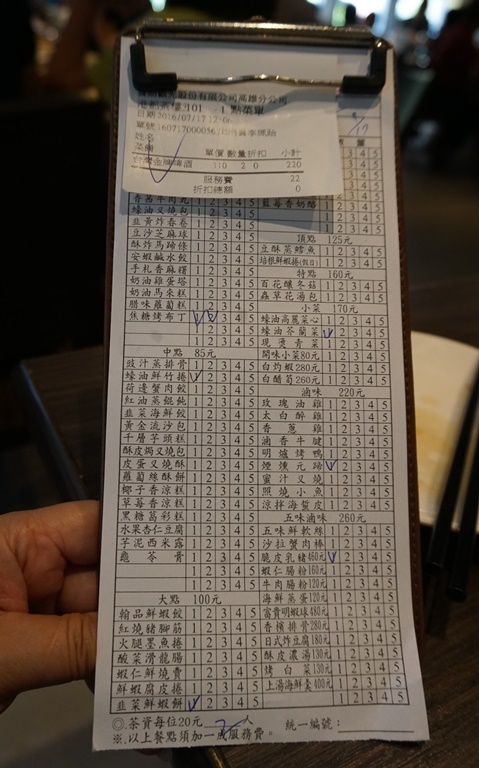 股份有限公司高雄分公司
101 - 1 點菜單
日期2016/07/17
單號
姓名
菜餚 單價 數量 折扣 小計
台灣金牌啤酒 110 2 0 220
服務費 22
折扣總額 0
蠔油叉燒包 1 2 3 4 5
韭黃炸春卷 1 2 3 4 5
豆沙芝麻球 1 2 3 4 5
酥炸馬蹄條 1 2 3 4 5
安蝦鹹水餃 1 2 3 4 5
手札香麻糬 1 2 3 4 5
奶油雞蛋塔 1 2 3 4 5
奶油馬來糕 1 2 3 4 5
腊味蘿蔔糕 1 2 3 4 5
焦糖烤布丁 1 2 3 4 5
1 2 3 4 5
1 2 3 4 5
中點 85元
豉汁蒸排骨 1 2 3 4 5
蠔油鮮竹捲 1 2 3 4 5
荷邊蟹肉餃 1 2 3 4 5
紅油蒸餛飩 1 2 3 4 5
韭菜海鮮餃 1 2 3 4 5
黃金流沙包 1 2 3 4 5
千層芋頭糕 1 2 3 4 5
酥皮焗叉燒包 1 2 3 4 5
皮蛋叉燒酥 1 2 3 4 5
蘿蔔絲酥餅 1 2 3 4 5
椰子香涼糕 1 2 3 4 5
草莓香涼糕 1 2 3 4 5
黑糖葛彩糕 1 2 3 4 5
水果杏仁豆腐 1 2 3 4 5
芋泥西米露 1 2 3 4 5
龜苓膏 1 2 3 4 5
1 2 3 4 5
大點 100元
翰品鮮蝦餃 1 2 3 4 5
紅燒豬腳筋 1 2 3 4 5
火腿墨魚捲 1 2 3 4 5
酸菜滑龍腸 1 2 3 4 5
蝦仁鮮燒賣 1 2 3 4 5
鮮蝦腐皮捲 1 2 3 4 5
韭菜鮮蝦餅 1 2 3 4 5
藍莓香奶酪 1 2 3 4 5
頂點 125元
豆酥蒸鱈魚 1 2 3 4 5
培根鮮蝦捲(假日) 1 2 3 4 5
特點 160元
百花釀冬菇 1 2 3 4 5
蟲草花湯包 1 2 3 4 5
小菜 170元
蠔油高麗菜心 1 2 3 4 5
蠔油芥蘭菜 1 2 3 4 5
現燙青菜 1 2 3 4 5
開味小菜80元 1 2 3 4 5
白灼蝦280元 1 2 3 4 5
白醋筍260元 1 2 3 4 5
滷味 220元
玫瑰油雞 1 2 3 4 5
太白醉雞 1 2 3 4 5
香蔥雞 1 2 3 4 5
滷香牛腱 1 2 3 4 5
明爐烤鴨 1 2 3 4 5
煙燻元蹄 1 2 3 4 5
蜜汁叉燒 1 2 3 4 5
照燒小魚 1 2 3 4 5
涼拌海蜇皮 1 2 3 4 5
五味滷味 260元
五味鮮軟絲 1 2 3 4 5
沙拉蟹肉棒 1 2 3 4 5
脆皮乳豬460元 1 2 3 4 5
蝦仁腸粉160元 1 2 3 4 5
牛肉腸粉120元 1 2 3 4 5
海鮮蒸蛋120元 1 2 3 4 5
富貴明蝦球480元 1 2 3 4 5
香檳排骨280元 1 2 3 4 5
日式炸豆腐180元 1 2 3 4 5
酥皮濃湯130元 1 2 3 4 5
烤白菜130元 1 2 3 4 5
上湯海鮮盒400元 1 2 3 4 5
◎.茶資每位20元 2人 統一編號：
※.以上餐點須加一成服務費。